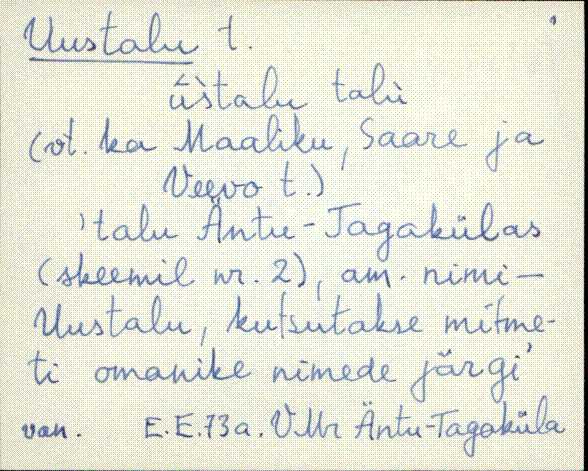 Uustalu t.
ūstalu talù
(vt. ka Maaliku, Saare ja
Veevo t.)
'talu Äntu-Tagakülas
(skeemil nr. 2), am. nimi—
Uustalu, kutsutakse mitme-
ti omanike nimede järgi'
van. E.E.73a. VMr Äntu-Tagaküla